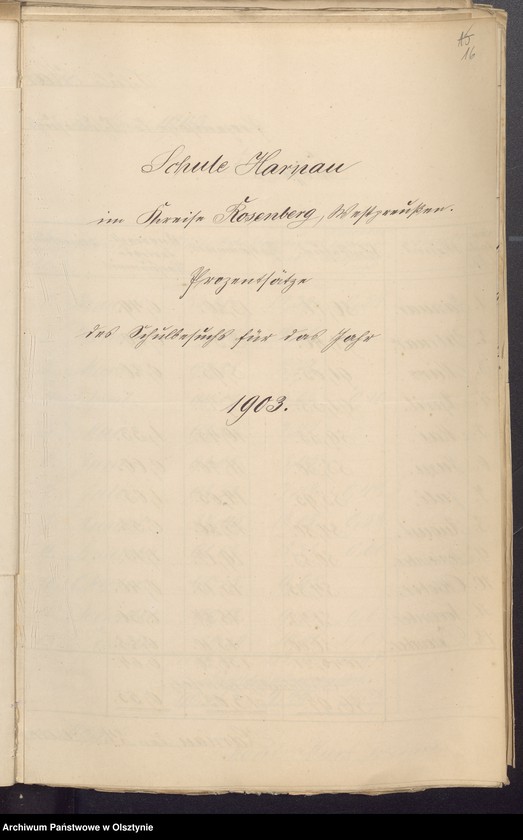 15
16
Schule Harnau
im Kreise Rosenberg, Westpreußen.
Prozentsätze
des Schulbesuchs für das Jahr
1903.
Archiwum Państwowe w Olsztynie